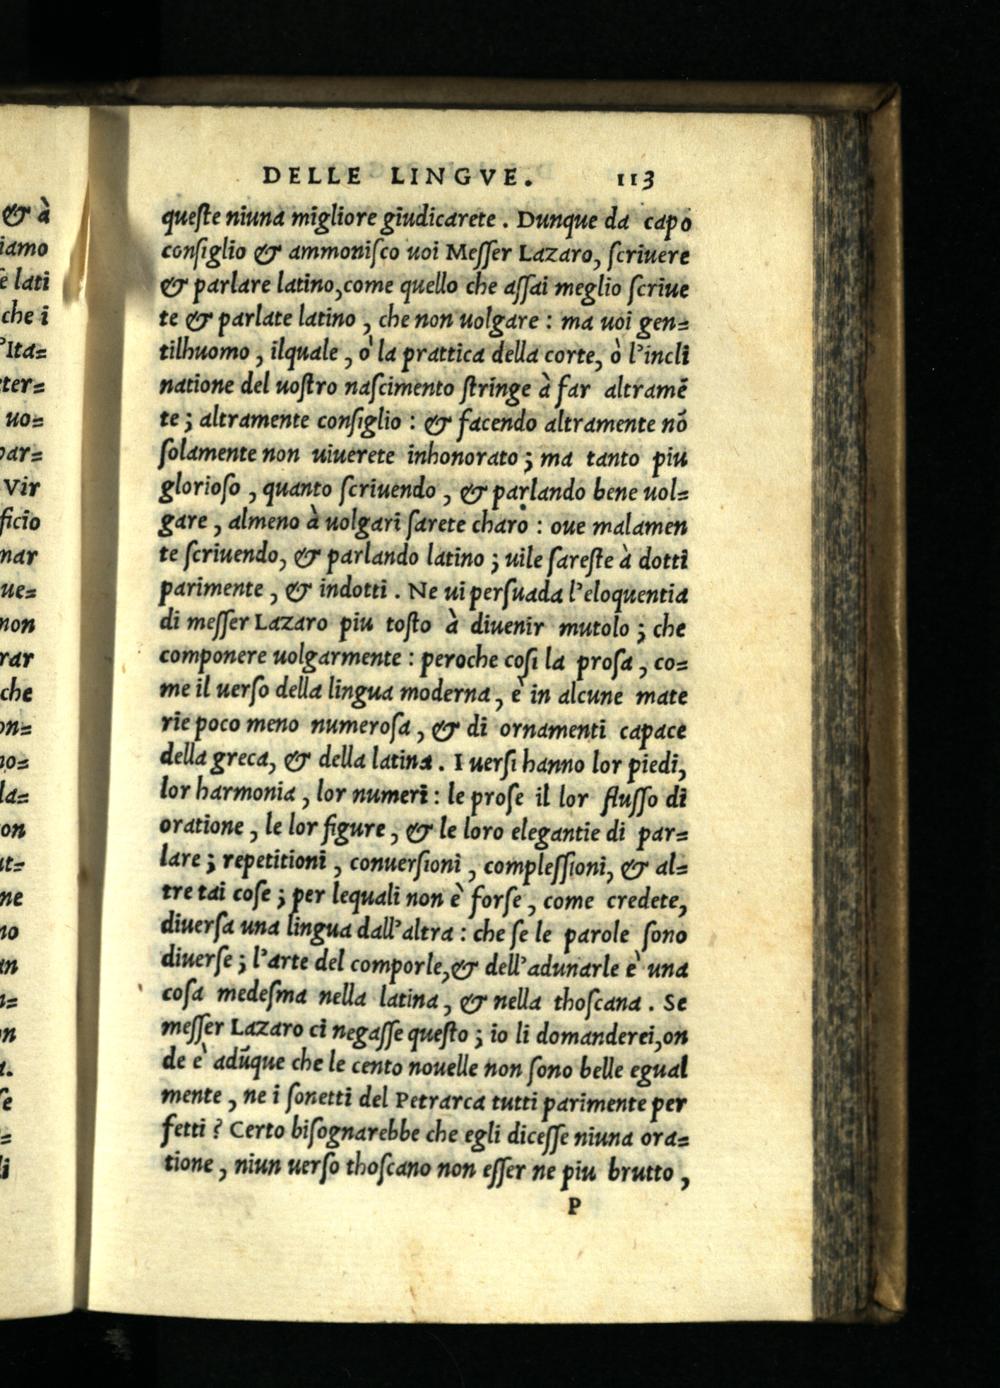 DELLE LINGVE. 113
queſte niuna migliore giudicarete. Dunque da capo
conſiglio & ammoniſco uoi Meſſer Lazaro, ſcriuere
& parlare latino, come quello che aſſai meglio ſcriue
te & parlate latino, che non uolgare: ma uoi gen=
tilhuomo, ilquale, ò la prattica della corte, ò l'incli
natione del uoſtro naſcimento ſtringe à far altramẽ
te; altramente conſiglio: & facendo altramente nõ
ſolamente non uiuerete inhonorato; ma tanto piu
glorioſo, quanto ſcriuendo, & parlando bene uol=
gare, almeno à uolgari ſarete charo: oue malamen
te ſcriuendo, & parlando latino; uile ſareſte à dotti
parimente, & indotti. Ne ui perſuada l'eloquentia
di meſſer Lazaro piu toſto à diuenir mutolo; che
componere uolgarmente: peroche coſi la proſa, co=
me il uerſo della lingua moderna, è in alcune mate
rie poco meno numeroſa, & di ornamenti capace
della greca, & della latina. I uerſi hanno lor piedi,
lor harmonia, lor numeri: le proſe il lor fluſſo di
oratione, le lor figure, & le loro elegantie di par=
lare; repetitioni, conuerſioni, compleſſioni, & al=
tre tai coſe; per lequali non è forſe, come credete,
diuerſa una lingua dall'altra: che ſe le parole ſono
diuerſe; l'arte del comporle, & dell'adunarle è una
coſa medeſma nella latina, & nella thoſcana. Se
meſſer Lazaro ci negaſſe queſto; io li domanderei, on
de è adũque che le cento nouelle non ſono belle egual
mente, ne i ſonetti del Petrarca tutti parimente per
fetti? Certo biſognarebbe che egli diceſſe niuna ora=
tione, niun uerſo thoſcano non eſſer ne piu brutto,
P
& à
iamo
ſe lati
che i
l'Ita=
eter=
uo=
par=
Vir
ficio
nar
ue=
non
rar
che
on=
no=
la=
on
ne
no